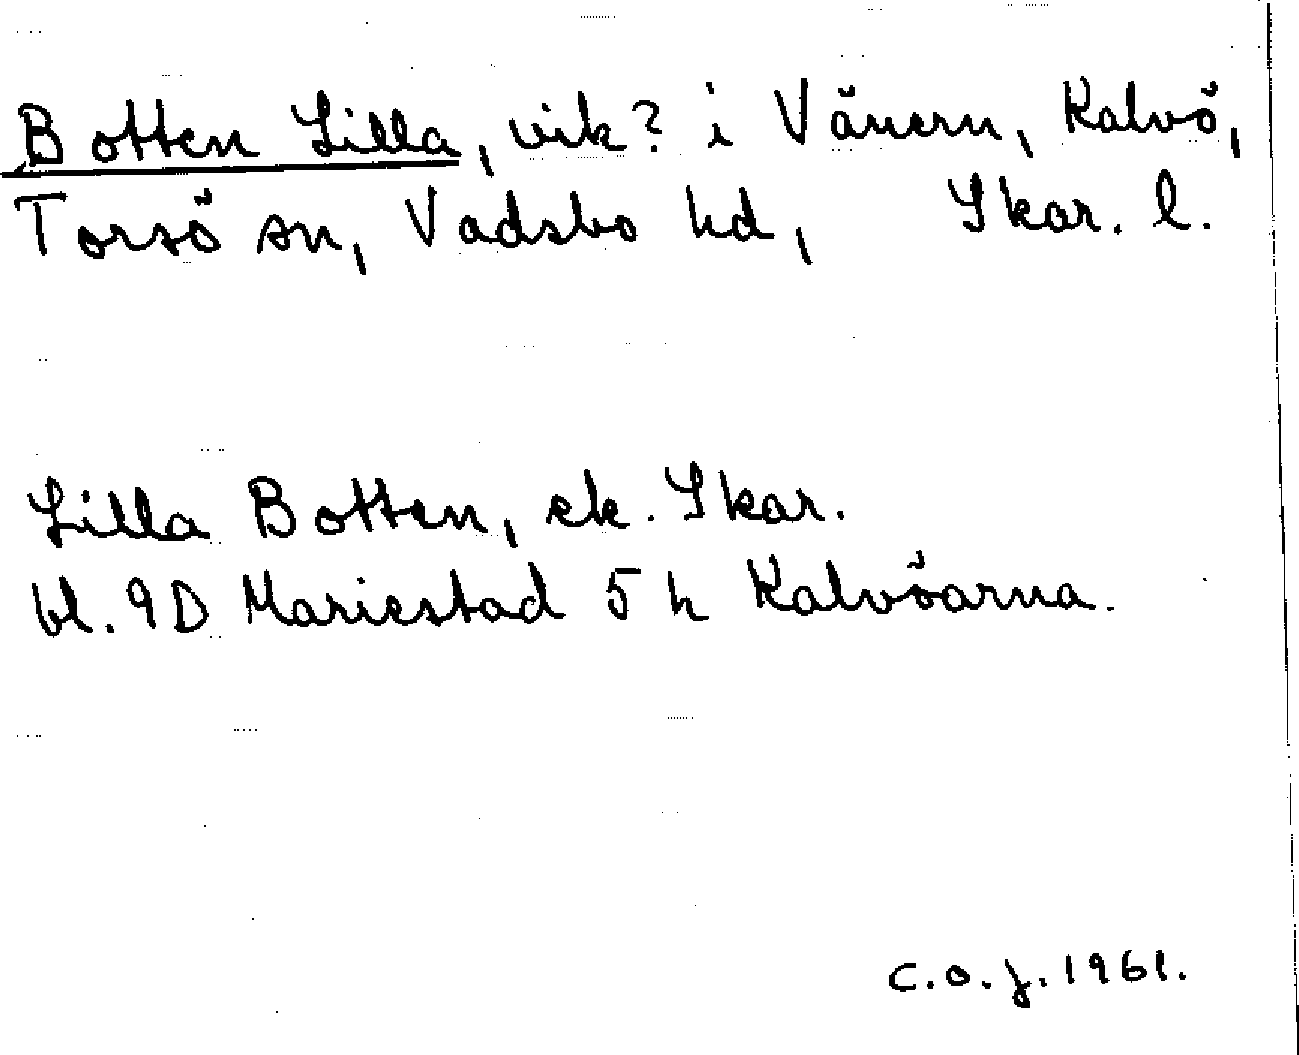 Botten Lilla, vik? i Vänern, Kalvö,
Torsö sn, Vadsbo hd, Skar. l.
Lilla Botten, ek. Skar.
bl. 9D Mariestad 5 h Kalvöarna.
C.O.J. 1961.